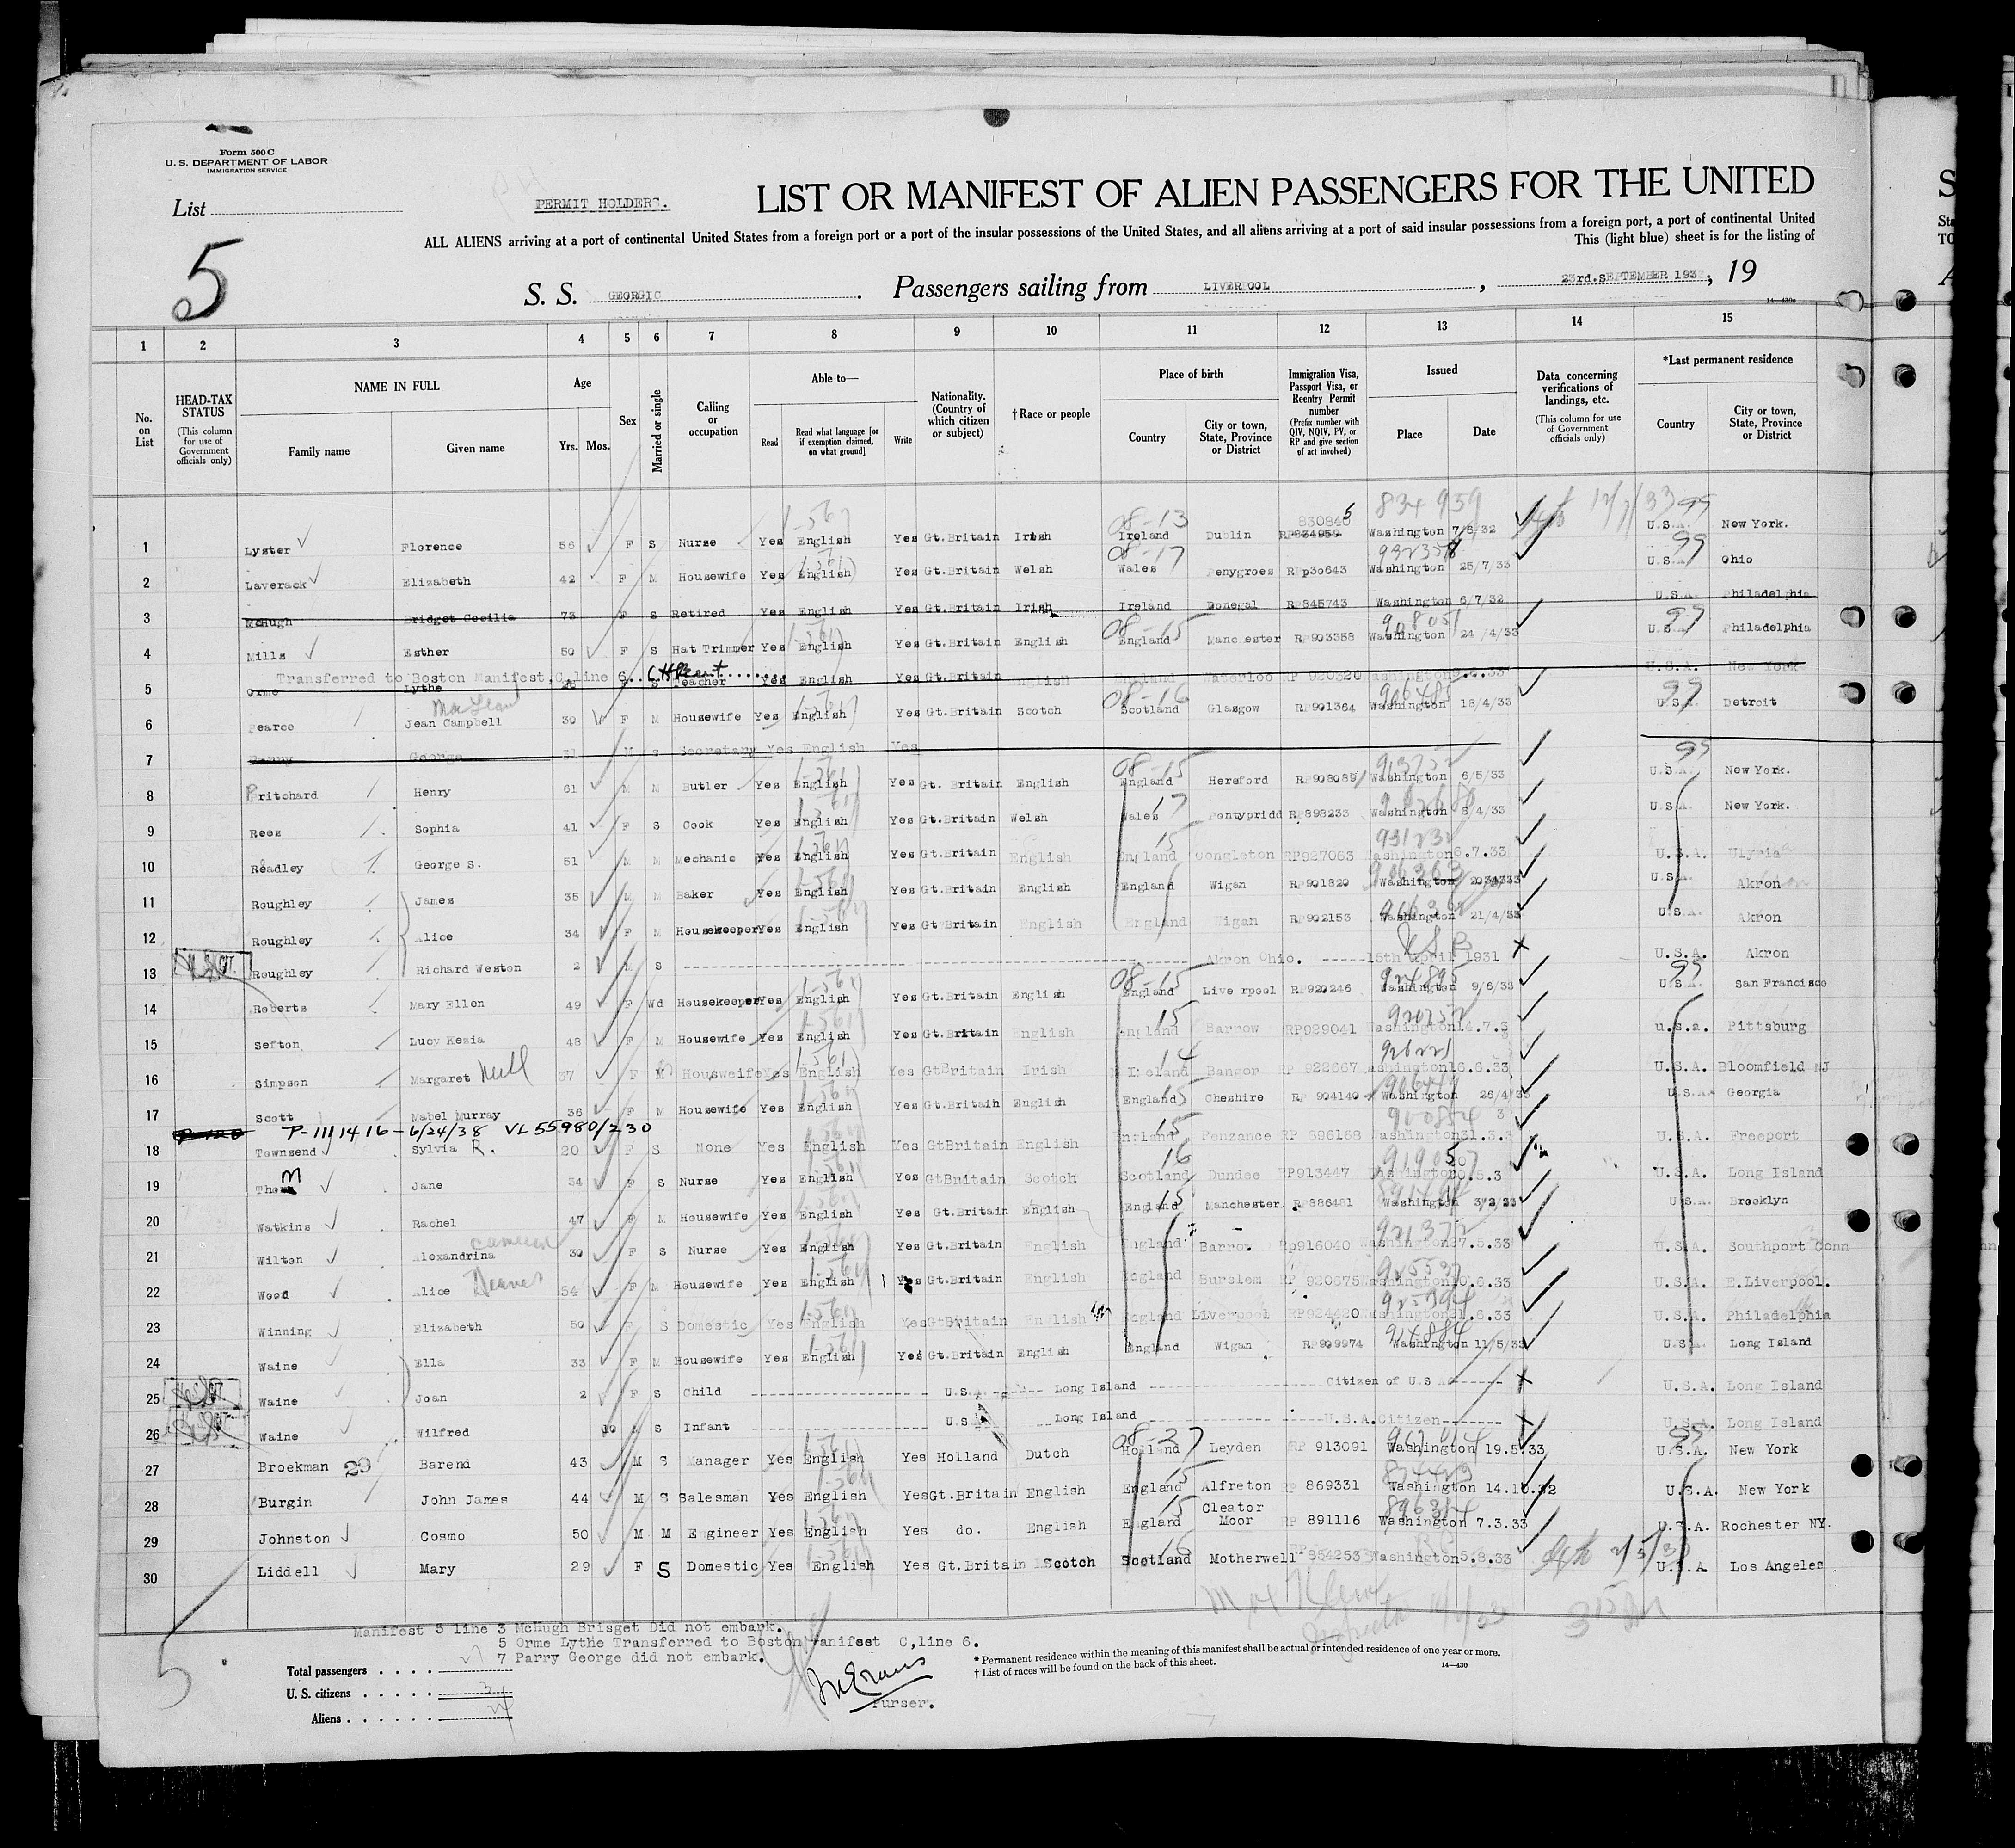 Form 500 C
U. S. DEPARTMENT OF LABOR
IMMIGRATION SERVICE
List
5
PERMIT HOLDERS.
LIST OR MANIFEST OF ALIEN PASSENGERS FOR THE UNITED
ALL ALIENS arriving at a port of continental United States from a foreign port or a port of the insular possessions of the United States, and all aliens arriving at a port of said insular possessions from a foreign port, a port of continental United
This (light blue) sheet is for the listing of
S. S. GEORGIC. Passengers sailing from LIVERPOOL, 23rd.SEPTEMBER 193, 19
14—430
1 2 3 4 5 6 7 8 9 10 11 12 13 14 15
No. on List
HEAD-TAX STATUS (This column for use of Government officials only)
NAME IN FULL Family name Given name
Age Yrs. Mos.
Sex
Married or single
Calling or occupation
Able to— Read Read what language [or if exemption claimed, on what ground] Write
Nationality. (Country of which citizen or subject)
†Race or people
Place of birth Country City or town, State, Province or District
Immigration Visa, Passport Visa, or Reentry Permit number (Prefix number with QIV, NQIV, PV, or RP and give section of act involved)
Issued Place Date
Data concerning verifications of landings, etc. (This column for use of Government officials only)
*Last permanent residence Country City or town, State, Province or District
1 Lyster Florence 56 F S Nurse Yes English Yes Gt.Britain Irish 08-13 Ireland Dublin 830840 5 RP834959 834959 Washington 7/8/32 99 U.S.A. New York.
2 Laverack Elizabeth 42 F M Housewife Yes English Yes Gt.Britain Welsh 08-17 Wales Penygroes Washington 25/7/33 99 U.S.A. Ohio
3 McHugh Bridget Cecilia 73 F S Retired Yes English Yes Gt.Britain Irish Ireland Donegal RP845743 Washington 6/7/32 U.S.A. Philadelphia
4 Mills Esther 50 F S Hat Trimmer Yes English Yes Gt.Britain English 08-15 England Manchester RP903358 908051 Washington 24/4/33 99 U.S.A. Philadelphia
Transferred to Boston Manifest.C.line 6.
5 Orme Lythe S Teacher Yes English Yes Gt.Britain English England Waterloo RP 920320 Washington U.S.A. New York
6 Pearce Jean Campbell MacLean 30 F M Housewife Yes English Yes Gt.Britain Scotch 08-16 Scotland Glasgow RP901364 Washington 18/4/33 99 U.S.A. Detroit
7 Parry George 31 M S Secretary Yes English Yes
8 Pritchard Henry 61 M M Butler Yes English Yes Gt. Britain English 08-15 England Hereford Washington 6/5/33 99 U.S.A. New York.
9 Rees Sophia 41 F S Cook Yes English Yes Gt.Britain Welsh 17 Wales Pontypridd RP898233 Washington 8/4/33 U.S.A. New York.
10 Readley George S. 51 M M Mechanic Yes English Yes Gt.Britain English 15 England Congleton RP927063 Washington 6.7.33 U.S.A.
11 Roughley James 35 M M Baker Yes English Yes Gt.Britain English England Wigan RP901820 906363 Washington U.S.A. Akron
12 Roughley Alice 34 F M Housekeeper Yes English Yes Gt.Britain English England Wigan RP902153 Washington 21/4/33 U.S.A. Akron
13 Roughley Richard Weston 2 M S Akron Ohio. 15th April 1931 U.S.A. Akron
14 Roberts Mary Ellen 49 F Wd Housekeeper Yes English Yes Gt.Britain English 08-15 England Liverpool RP920246 924895 Washington 9/6/33 99 U.S.A. San Francisco
15 Sefton Lucy Kezia 48 F M Housewife Yes English Yes Gt.Britain English 15 England Barrow RP929041 Washington U.S.A. Pittsburg
16 Simpson Margaret Neill 37 F M Housewife Yes English Yes GtBritain Irish 14 Ireland Bangor RP 922667 Washington 16.6.33 U.S.A. Bloomfield NJ
17 Scott Mabel Murray 36 F M Housewife Yes English Yes Gt.Britain English England 15 Cheshire RP 904140 Washington 26/4/33 U.S.A. Georgia
P-1111416-6/24/38 VL 55980/230
18 Townsend Sylvia R. 20 F S None Yes English Yes GtBritain English 15 England Penzance RP 896168 Washington 31.3.3 U.S.A. Freeport
19 Thom Jane 34 F S Nurse Yes English Yes GtBritain Scotch 16 Scotland Dundee RP913447 Washington U.S.A. Long Island
20 Watkins Rachel 47 F M Housewife Yes English Yes Gt.Britain English England 15 Manchester RP886481 Washington 3/2/33 U.S.A. Brooklyn
21 Wilton Alexandrina Cameron 30 F S Nurse Yes English Yes Gt.Britain English England Barrow Rp916040 921372 Washington 27.5.33 U.S.A. Southport Conn
22 Wood Alice Deaves 54 F M Housewife Yes English Yes Gt.Britain English England Burslem RP 920675 Washington 10.6.33 U.S.A. E.Liverpool.
23 Winning Elizabeth 50 F S Domestic Yes English Yes GtBritain English England Liverpool RP924420 925394 Washington 21.6.33 U.S.A. Philadelphia
24 Waine Ella 33 F M Housewife Yes English Yes Gt.Britain English England Wigan RP909974 914884 Washington 11/5/33 U.S.A. Long Island
25 Waine Joan 2 F S Child U.S.A. Long Island Citizen of U S A U.S.A. Long Island
26 Waine Wilfred 10 M S Infant U.S.A. Long Island U.S.A.Citizen U.S.A. Long Island
27 Broekman 29 Barend 43 M S Manager Yes English Yes Holland Dutch 08-27 Holland Leyden RP 913091 Washington 19.5.33 99 U.S.A. New York
28 Burgin John James 44 M S Salesman Yes English Yes Gt.Britain English 15 England Alfreton RP 869331 Washington 14.10.32 U.S.A. New York
29 Johnston Cosmo 50 M M Engineer Yes English Yes do. English 15 England Cleator Moor RP 891116 Washington 7.3.33 U.S.A. Rochester NY.
30 Liddell Mary 29 F S Domestic Yes English Yes Gt.Britain Scotch 16 Scotland Motherwell 854253 Washington 5.8.33 U.S.A Los Angeles
Manifest 5 line 3 McHugh Brisget Did not embark.
5 Orme Lythe Transferred to Boston manifest C,line 6.
7 Parry George did not embark.
5
Total passengers
U. S. citizens 3
Aliens
Purser.
* Permanent residence within the meaning of this manifest shall be actual or intended residence of one year or more.
† List of races will be found on the back of this sheet.
14—430